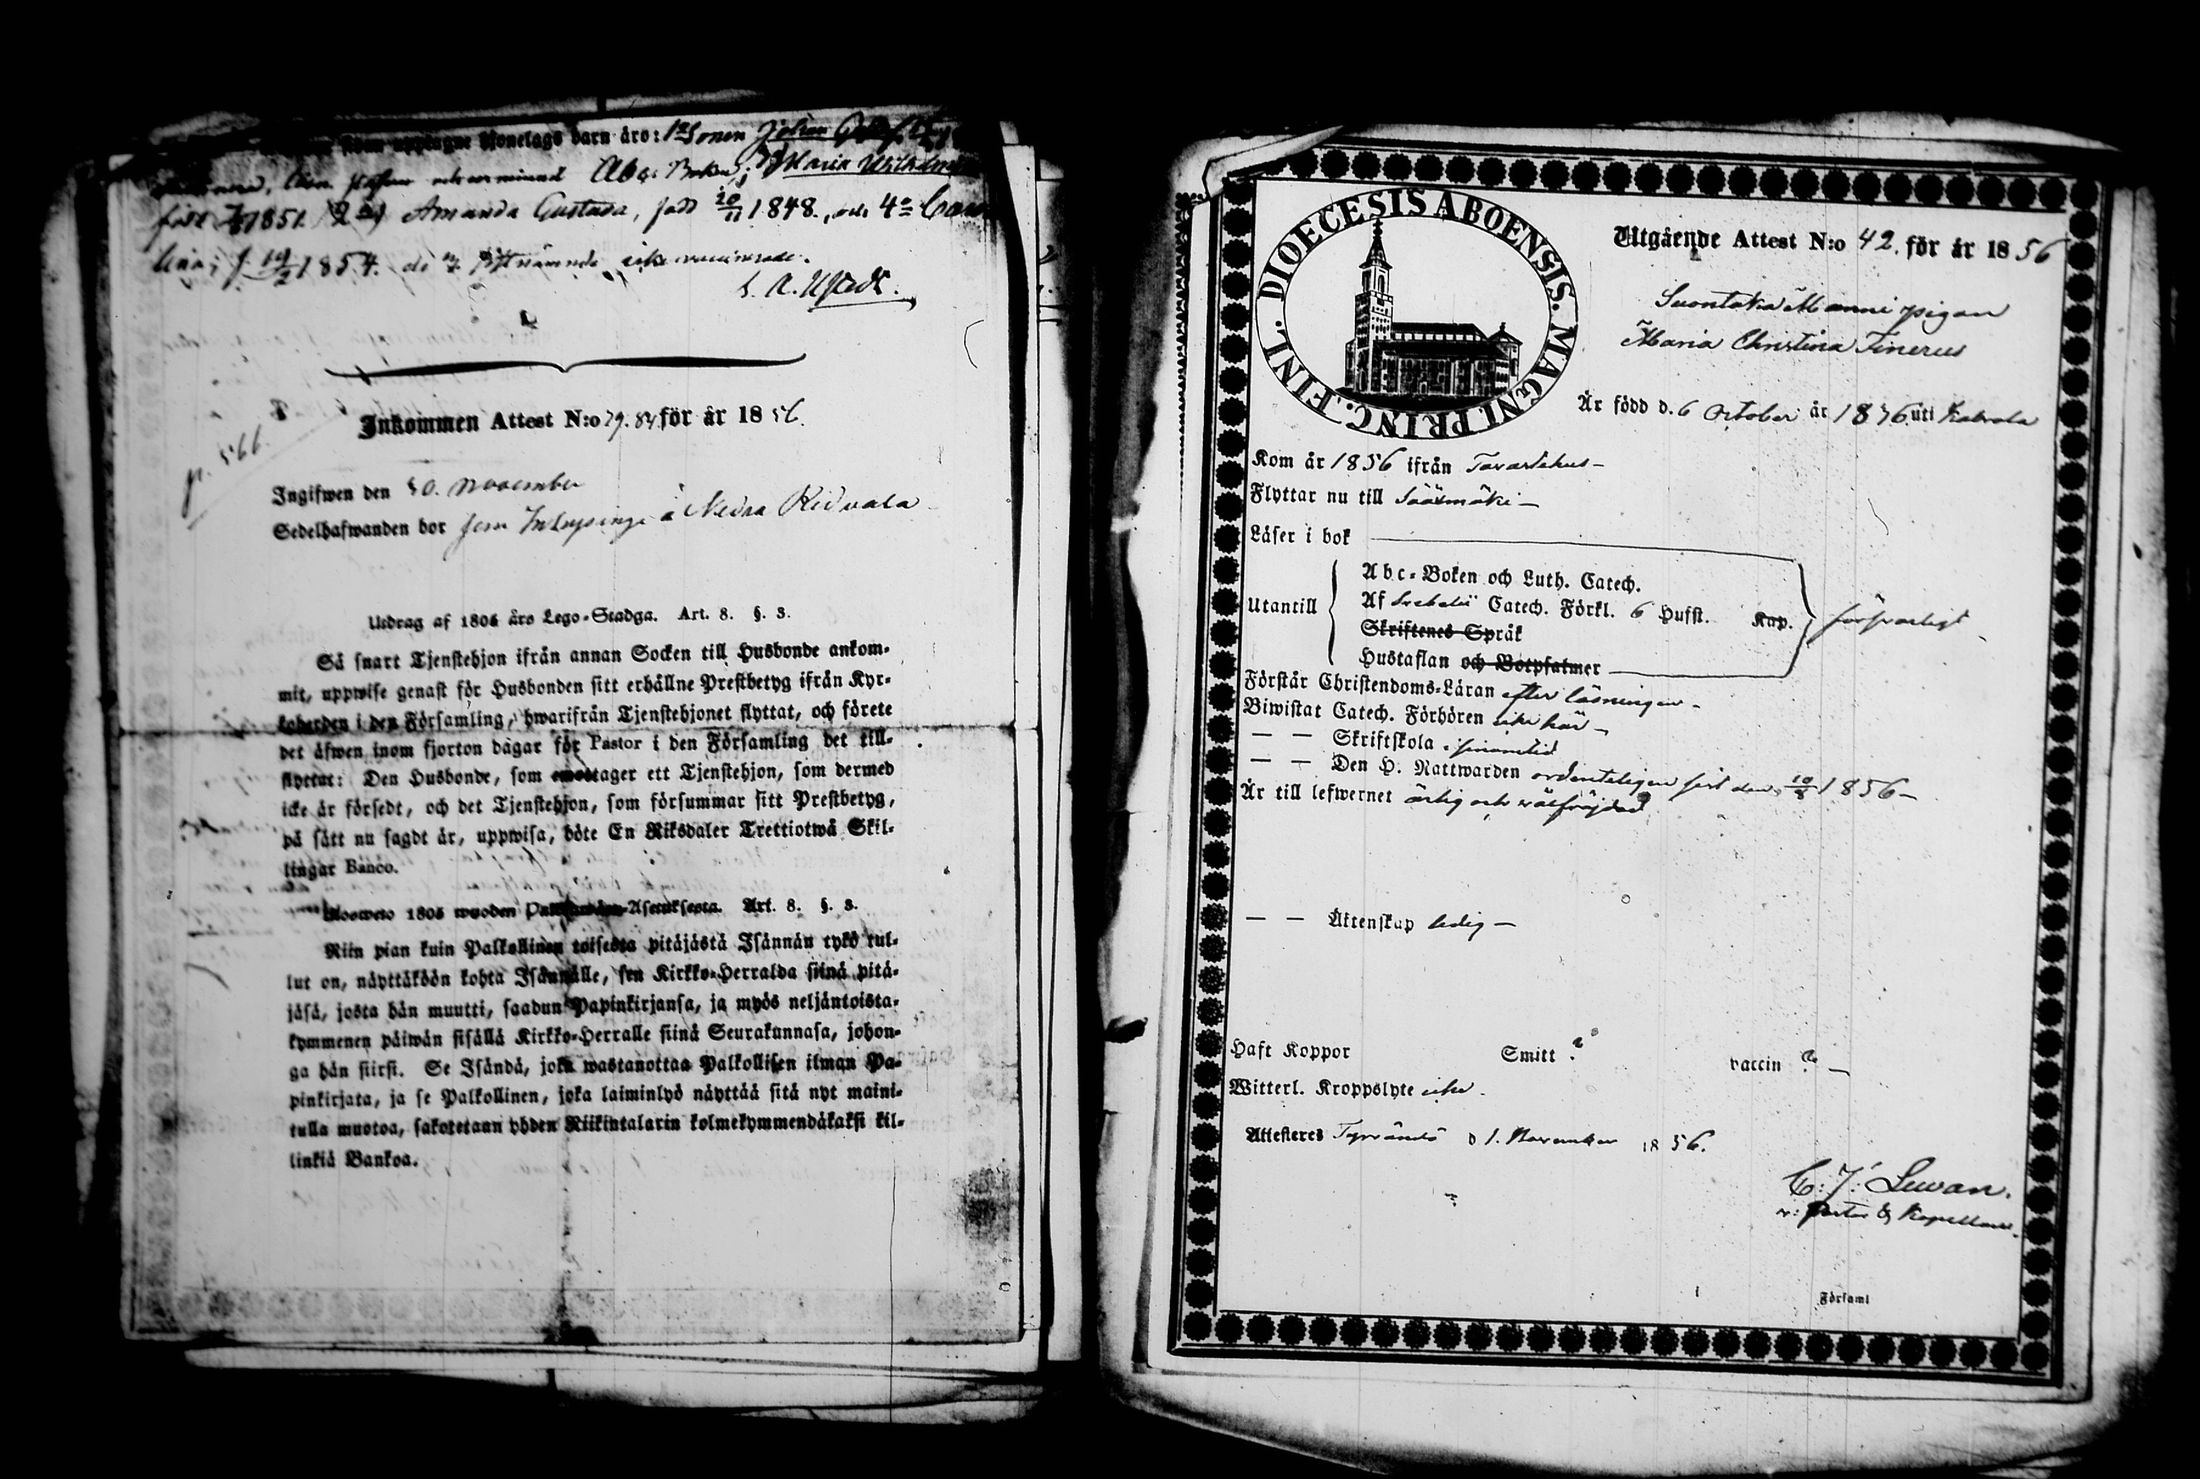 barn äro: 1o Sonen Johan
Abc Boken, Maria
född 1851. Amanda Gustava, född 20/11 1848., och 4o
lina; f. 19/2 1854. de icke vaccinerade.
Inkommen Attest N:o 79. 84. för år 1856.
p. 566.
Ingifwen den 30. November
Sedelhafwanden bor som Inhysinge å Nedra Ridvala
Utdrag af 1805 års Lego-Stadga. Art. 8. §. 3.
Så snart Tjenstehjon ifrån annan Socken till Husbonde ankom-
mit, uppwise genast för Husbonden sitt erhållne Prestbetyg ifrån Kyr-
koherden i den Församling, hwarifrån Tjenstehjonet flyttat, och förete
det äfwen inom fjorton dagar för Pastor i den Församling det till-
flyttat: Den Husbonde, som emottager ett Tjenstehjon, som dermed
icke är försedt, och det Tjenstehjon, som försummar sitt Prestbetyg,
på sätt nu sagdt är, uppwisa, böte En Riksdaler Trettiotwå Skil-
lingar Banco.
1805 wuoden Asetuksesta. Art. 8. §. 3.
Niin pian kuin Palkollinen toisesta pitäjästä Isännän tykö tul-
lut on, näyttäköön kohta Isännälle, sen Kirkko-Herralda siinä pitä-
jäsä, josta hän muutti, saadun Papinkirjansa, ja myös neljäntoista-
kymmenen päiwän sisällä Kirkko-Herralle siinä Seurakunnasa, johon-
ga hän siirsi. Se Isändä, joka wastanottaa Palkollisen ilman Pa-
pinkirjata, ja se Palkollinen, joka laiminlyö näyttää sitä nyt maini-
tulla muotoa, sakotetaan yhden Riikintalarin kolmekymmendäkaksi kil-
linkiä Bankoa.
DIOECESIS ABOENSIS. MAGNI. PRINC. FINL.
Utgående Attest N:o 42. för år 1856
Suontaka Manni pigan
Maria Christina Finerus
Är född d. 6 October år 1836 uti Kalvola
Kom år 1856 ifrån Tavastehus
Flyttar nu till Sääxmäki
Läser i bok
Abc-Boken och Luth. Catech.
Utantill Af Svebelii Catech. Förkl. 6 Hufst. Kap. försvarligt
Skriftenes Språk
Hustaflan och Botpsalmer
Förstår Christendoms-Läran efter läsningen
Biwistat Catech. Förhören icke här
— — Skriftskola i sinom tid
— — Den H. Nattwarden ordenteligen sist den 10/8 1856
Är till lefwernet ärlig och välfräjdad
— — Äktenskap ledig
Haft Koppor Smitt ? vaccin ?
Witterl. Kroppslyte icke.
Attesteres Tyrvändö d 1. November 1856.
C: J: Lewan.
v: Pastor & Kapellan.
Församl